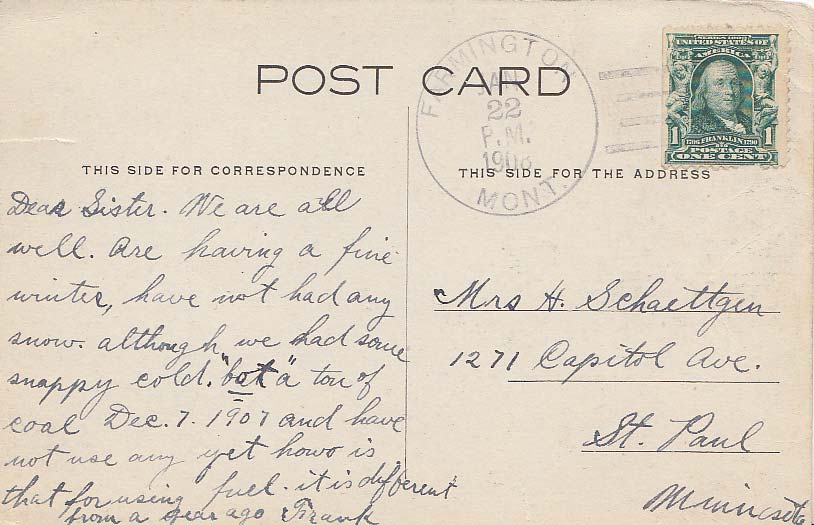 POST CARD
FARMINGTON
JAN
22
P.M.
1908
MONT.
SERIES 1902
UNITED STATES OF
AMERICA
1 1706 FRANKLIN 1790 1
POSTAGE
ONE CENT
THIS SIDE FOR CORRESPONDENCE
THIS SIDE FOR THE ADDRESS
Dear Sister. We are all
well. Are having a fine
winter, have not had any
snow. although, we had some
snappy cold. "bot" a ton of
coal Dec. 7. 1907 and have
not use any yet howo is
that for using fuel. it is different
from a year ago Frank
Mrs H. Schaettgen
1271 Capitol Ave.
St. Paul
Minnesota